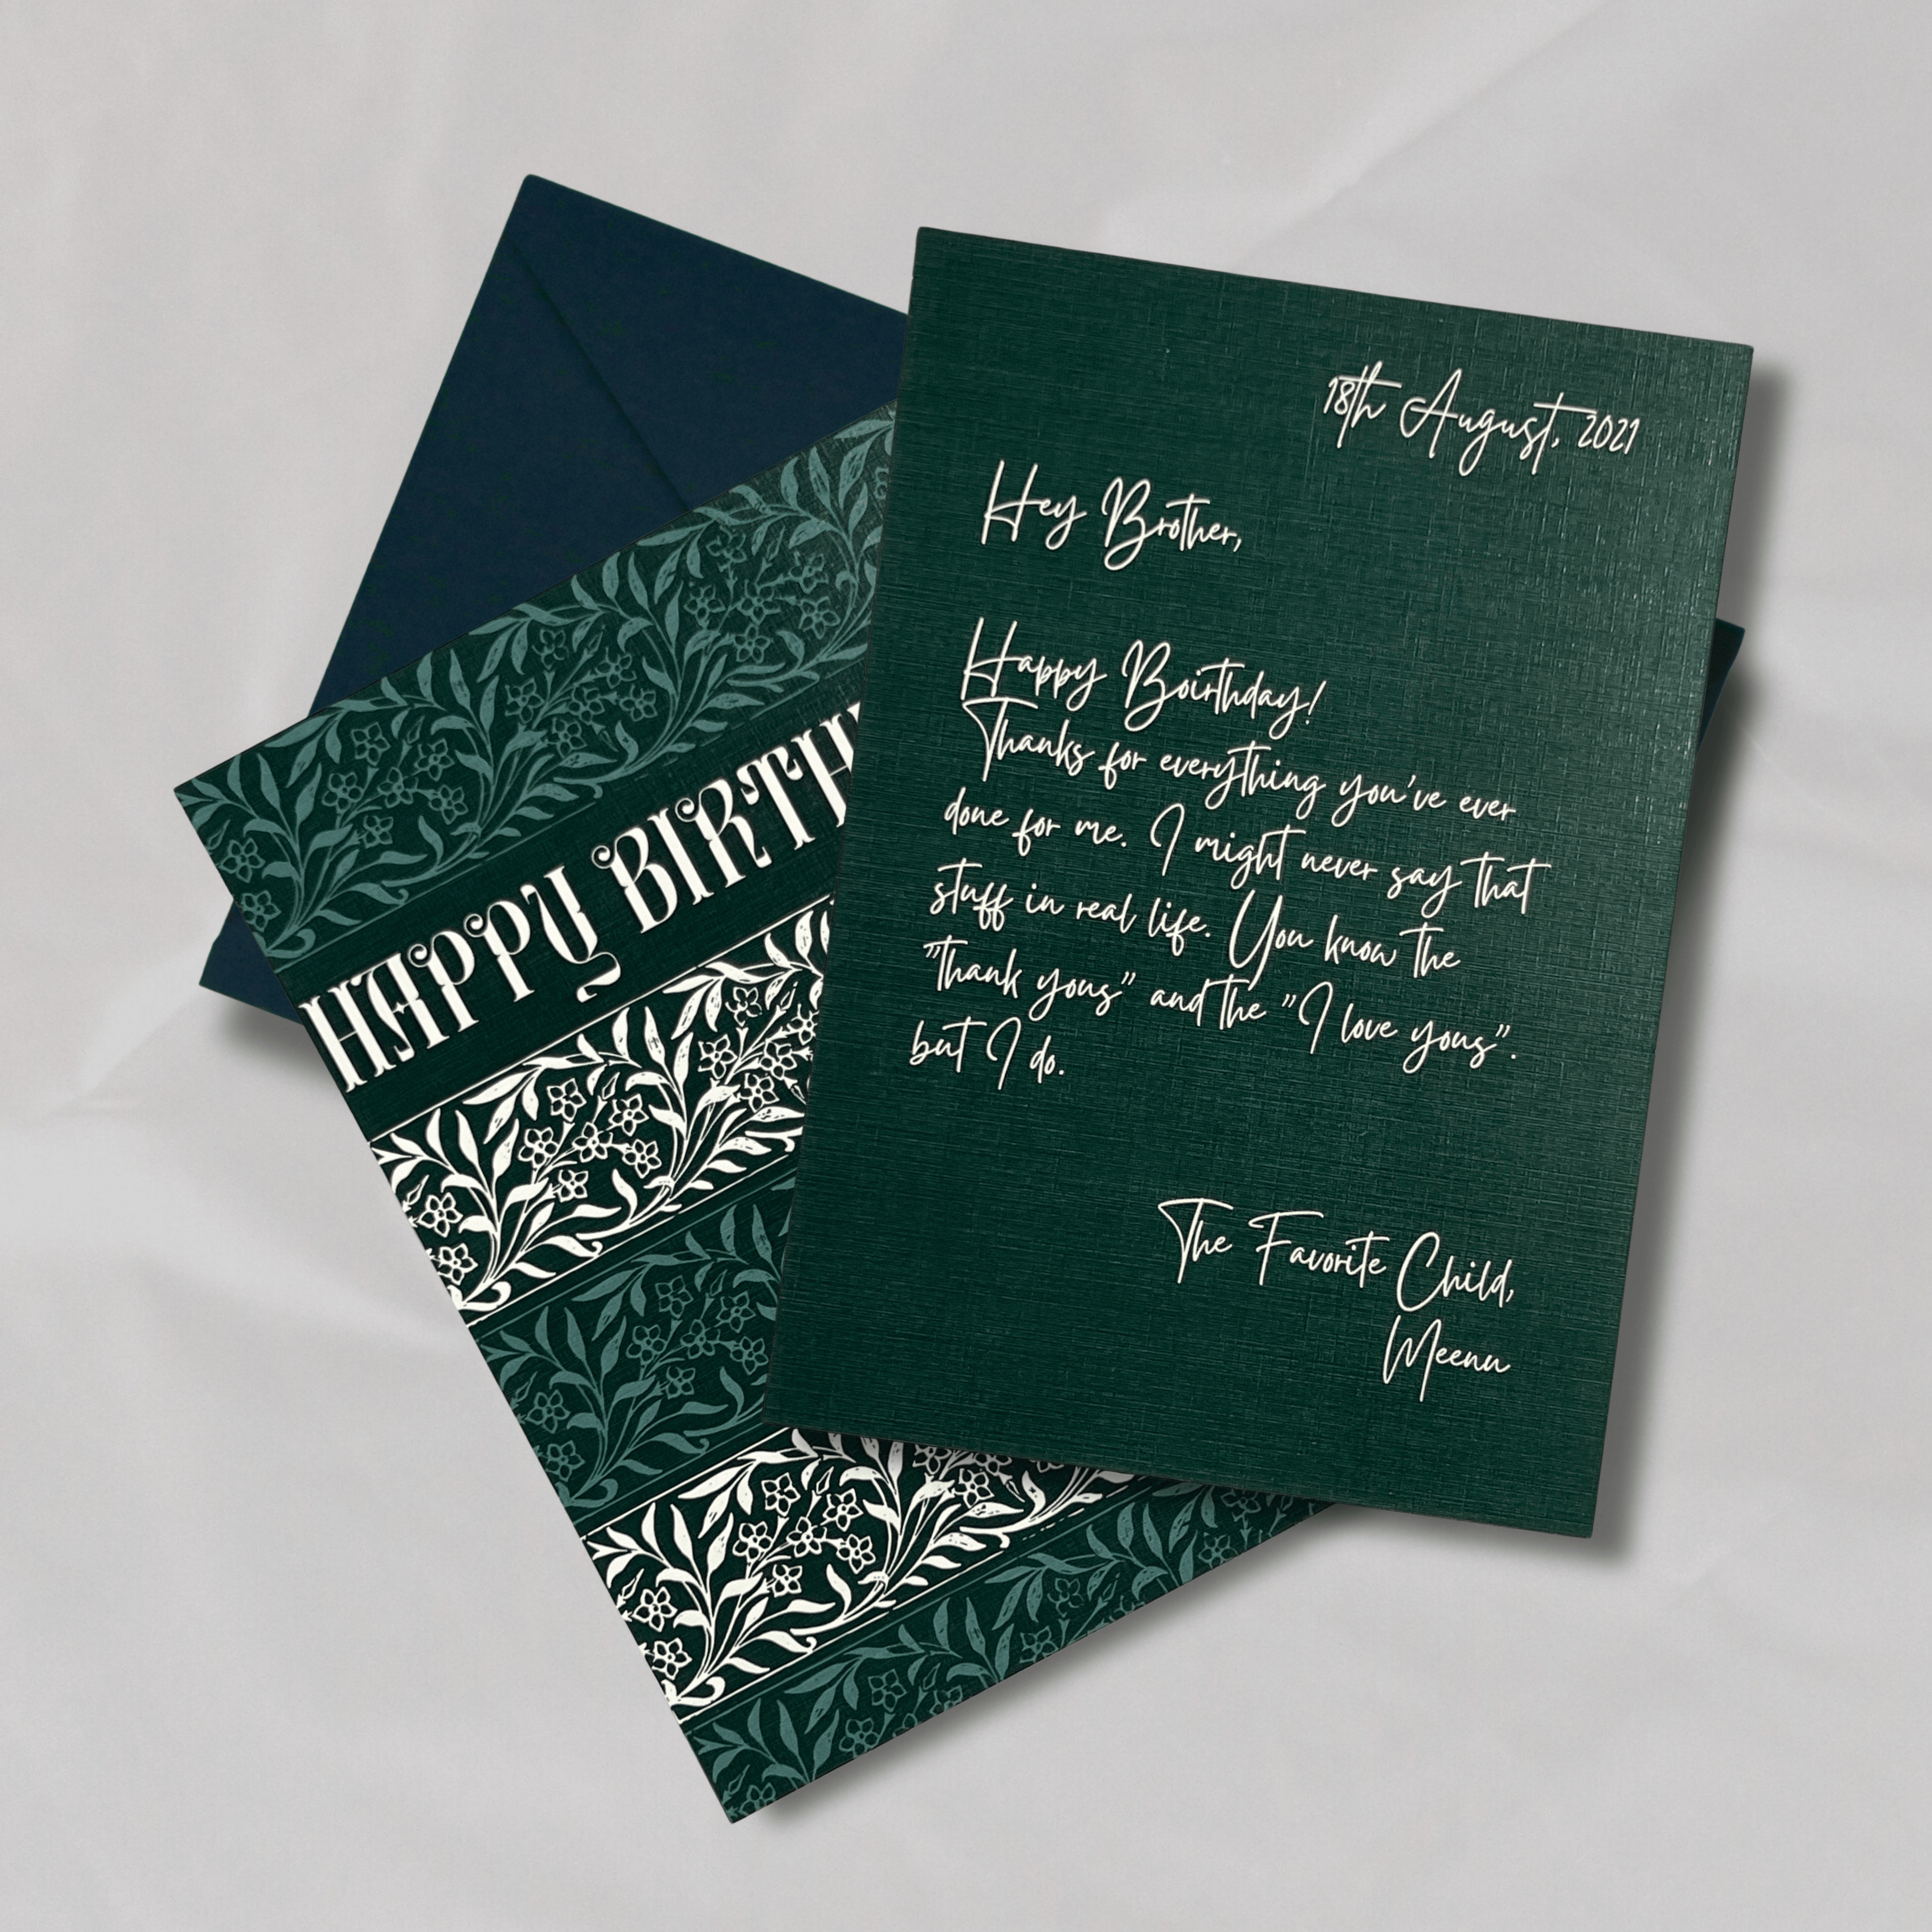 HAPPY BIRTH
18th August, 2021
Hey Brother,
Happy Boirthday!
Thanks for everything you've ever
done for me. I might never say that
stuff in real life. You know the
"thank yous" and the "I love yous".
but I do.
The Favorite Child,
Meenu